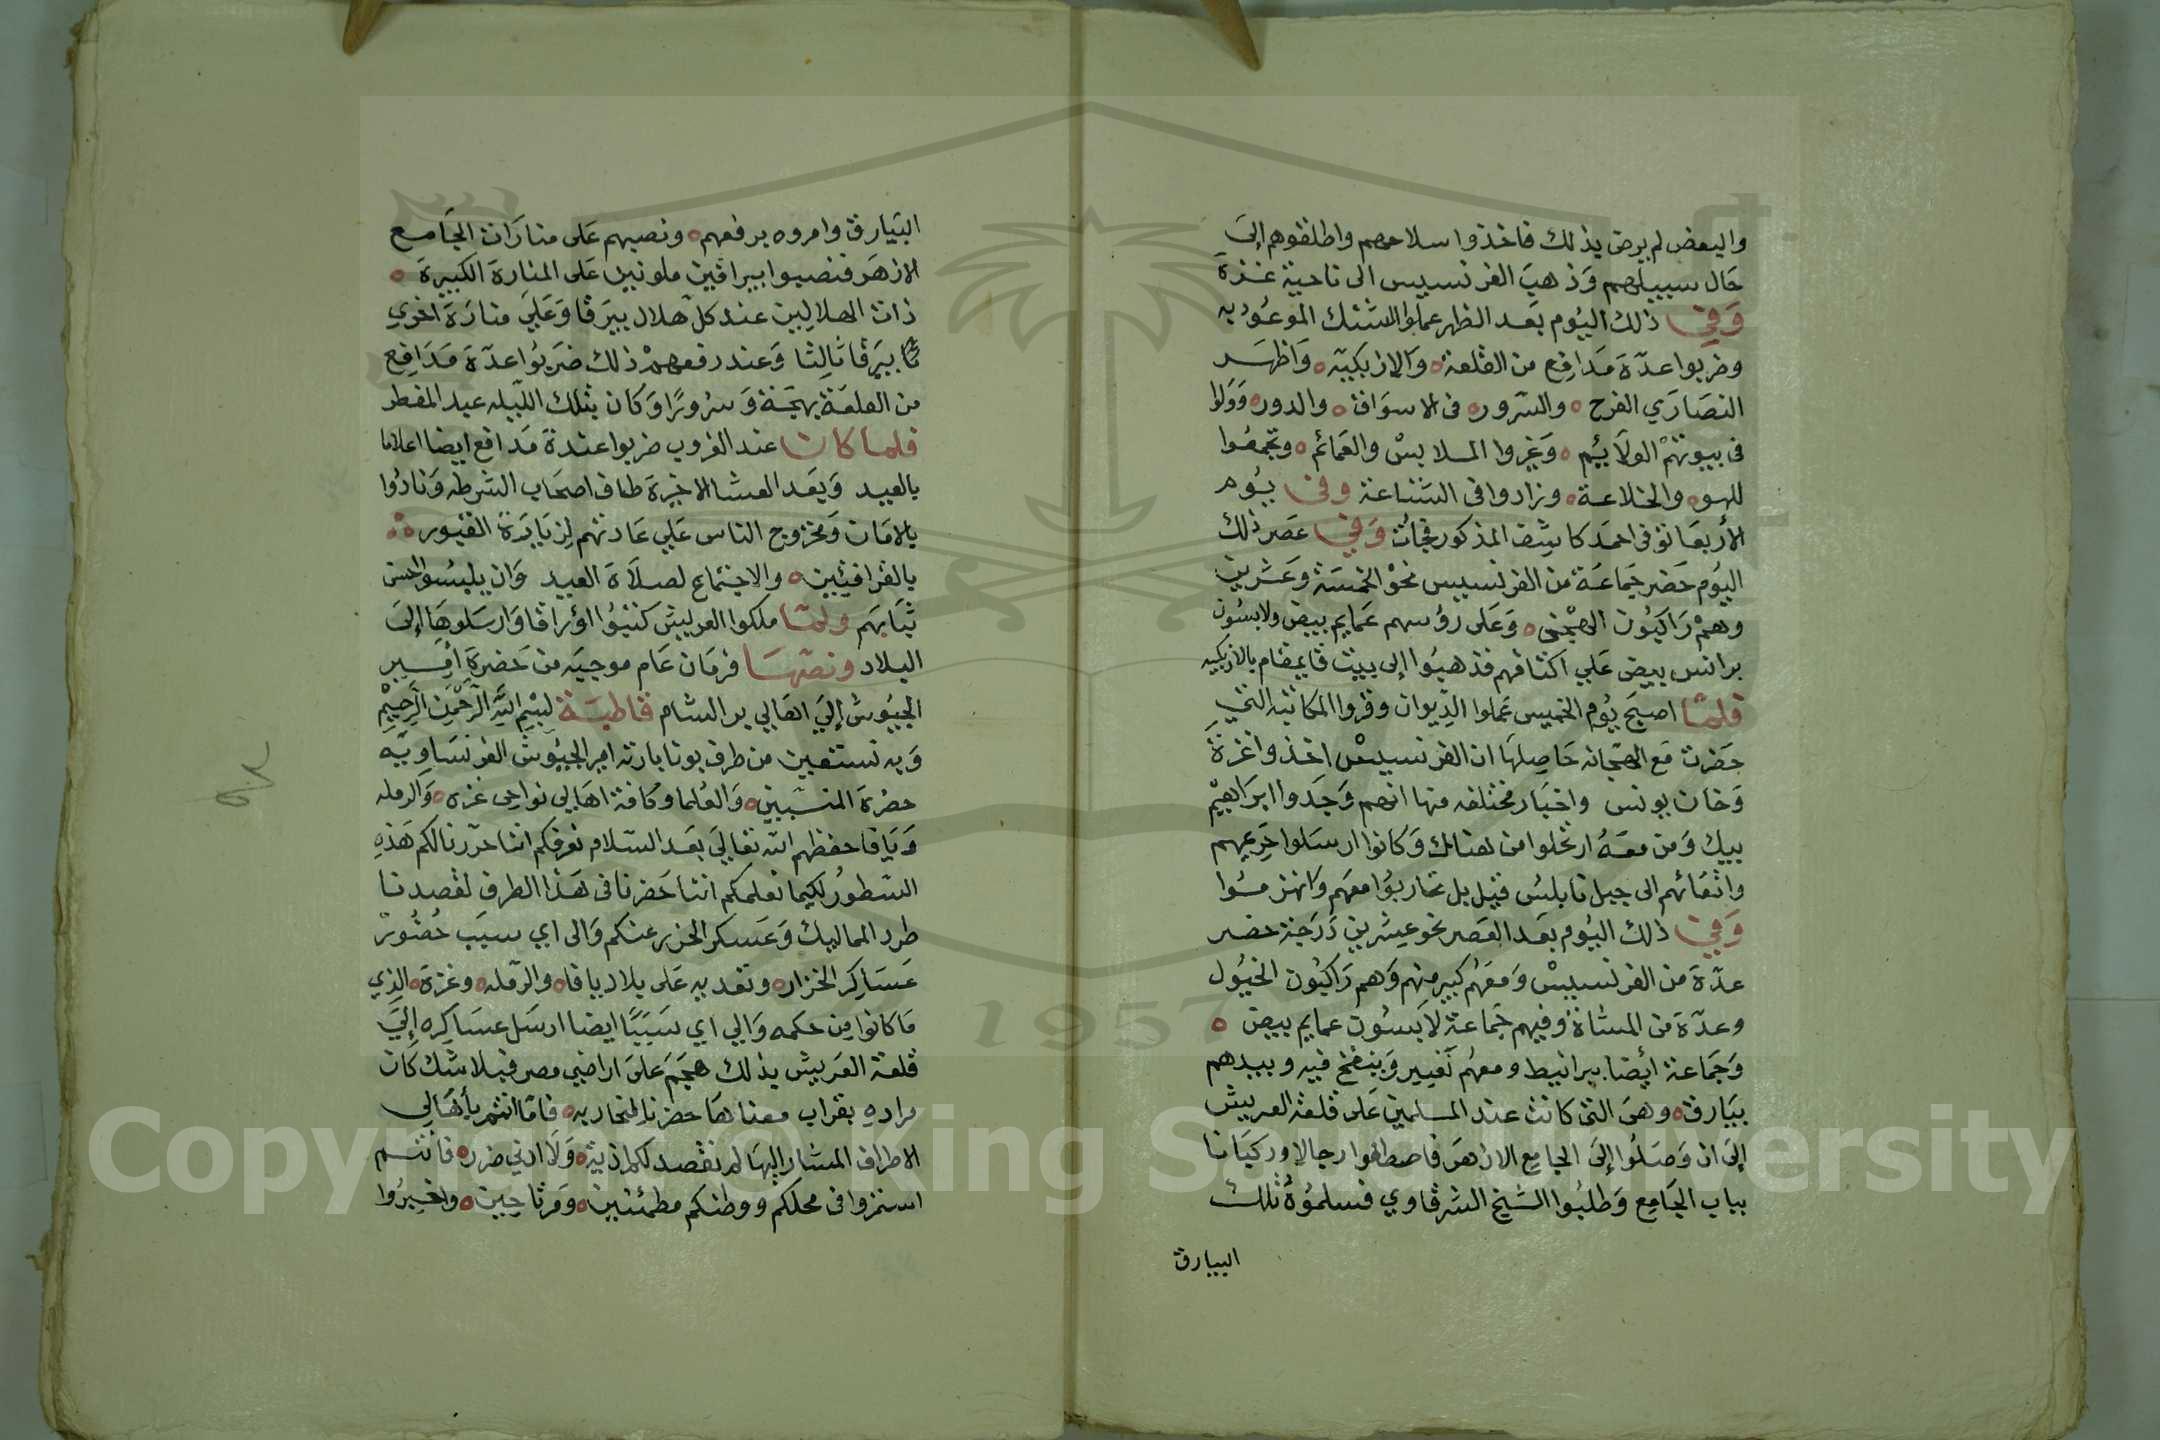 والبعض لم يرض بذلك فاخذوا سلاحهم واطلقوهم إلى
حَال سبيلهم وَذهبَ الفرنسيس الى ناحية غزة
وَفي ذلك اليَوم بعَد الظهر عملوا الشنك الموعُود به
وضربوا عدّة مَدَافِع من القلعة والازبكيّه وَاظهر
النصَارَي الفرح والسّرور فى الاسوَاق والدور وَوَلوا
فى بيوتهمْ الولَائِم وَغيروا الملابسْ والعَمائم وتجمعُوا
للهو والخلاعة وزادوا فى الشناعة وفي يَوم
الأربعَا توفى احمَد كاشِف المذكور فجأت وَفي عصَر ذلك
اليَوم حَضر جَماعَة من الفرنسيس نحوْ الخمسَة وعَشرين
وهمْ رَاكبُون الهجْن وَعَلى رؤسهم عَمايم بيض ولابسُون
برانس بيض عَلي اكتافهم فذهبُوا إلى بيت قايمقام بالازبكيه
فلمّا اصبحَ يَوم الخميس عملوا الدّيوان وقروا المكاتبه التي
حَضرت مَع الهجّانه حَاصِلهَا ان الفرنسيسْ اخذوا غزة
وَخان يونس واخبَار مختلفه منها انهم وَجَدوا ابرَاهيْم
بيك وَمن معَهُ ارتحلوا من هناك وَكانوا ارسَلوا حَرِيمهم
واثقائهم الى جبل نابلسُ قيل بل تحاربُوا معَهم وَانهزمُوا
وَفي ذلك اليَوم بعَد العَصر نحو عِشرين دَرَجَة حضر
عدّة من الفرنسيسْ وَمعَهُم كبير منهم وَهم رَاكبُون الخيُول
وعدّة من المشاة وفيهم جَماعة لابسُون عمايم بيض
وَجَمَاعة أيضا ببرانيط ومعهُم نَفير وَينفخ فيه وبيدهم
بيَارق وهيَ التى كانت عند المسلمين عَلى قلعة العريش
إلىَ ان وَصَلُوا إلىَ الجامِع الازهَر فاصطفوا رجالا وركبَانا
بباب الجَامِع وَطلبُوا الشيخ الشرقاوي فسلمُوهُ تلك
البيارق
البيَارق وامروه برفعهم ونصبهم عَلى منارَات الجَامع
الازهَر فنصبوا بيراقين ملونين عَلى المنارة الكبيرة
ذات الهلالين عند كل هلال بيَرقا وَعَليَ منارَة اخري
بيَرقا ثالِثا وَعند رفعهمْ ذلك ضرَبُوا عدّة مَدَافِع
من القلعَة بهجَة وَسرُورًا وَكان بتلك اللّيله عيد المفطر
فلما كان عند الغروب ضربوا عندة مَدافع ايضا اعلاما
بالعيد وَبعَد العشا الاخيرة طاف اصحَاب الشرطه وَنادُوا
بالامَان وَبخرُوج الناس عَلي عَادتهم لِزيَارَة القبُور
بالقرافتين والاجتماع لصلَاة العيد وَان يلبسُوا احسن
ثيَابهَم ولمّا ملكوا العريش كتبُوا اوْراقا وَارسَلوهَا إلىَ
البلاد ونصّهَا فرمَان عَام موجّه من حَضرة أمَير
الجيُوش إليَ اهَالي بر الشام قاطبَة بِسْمِ اللهِ الرَّحْمَنِ الرَّحِيْمِ
وَبه نستعين من طرف بونابارته امير الجيُوش الفرنسَاوِيّه
حضرَة المنسّبين وَالعُلما وكافة اهَالي نواحِى غزه وَالرمله
وَيَافا حفظهم الله تعَاليَ بعَد السّلام نعرفكم اننا حرّرنا لكم هَذهِ
السّطورُ لكيما نعلمكم اننا حَضرنا في هَذا الطرف لقصدنا
طرد المماليك وَعَسكر الجزر عنكم وَالى اي سبَب حُضُور
عَسَاكِر الخزار وتعديه عَلى بلاد يافا والرّمله وغزة الذي
مَا كانوا مِن حكمه وَالي اي سَبَبًا ايضا ارسَل عسَاكِره إليَ
قلعة العَريش بذلك هجَمَ عَلىَ اراضي مصر فبلا شك كان
مرادهِ بقراب معنا هَا حضرنا لمحاربه فامّا انتم يأهَالي
الاطراف المشار إليهَا لم نقصد لكم اذيّة وَلا ادني ضرر فانتم
استمروا فى محلكمْ ووطنكم مطمئنين ومرتاحِين واخبرُوا